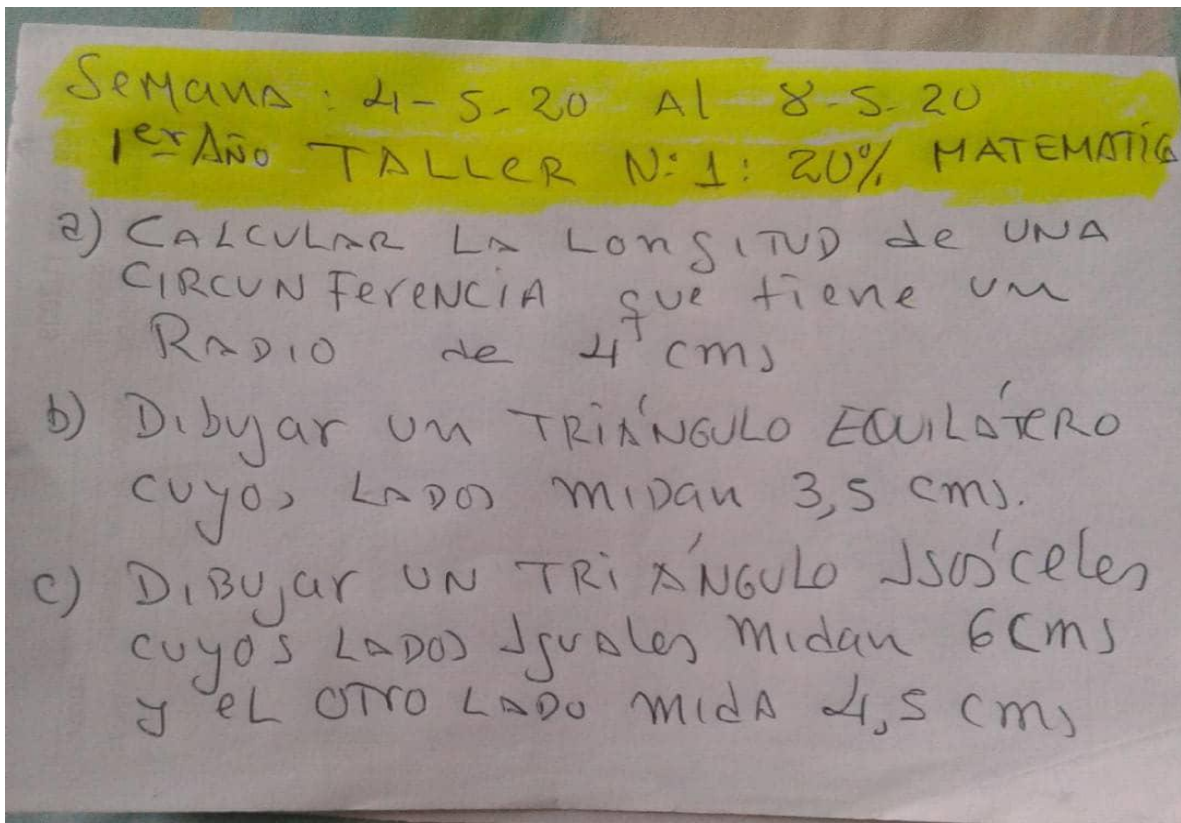 Semana: 4-5-20 Al 8-5-20
1er Año TALLER N:1: 20% MATEMATICA
a) CALCULAR LA LONGITUD de UNA
CIRCUNFerENCIA que tiene un
RADIO de 4 cms
b) Dibujar un TRIÁNGULO EQUILÁTERO
cuyos LADOS MIDan 3,5 cms.
c) DIBUjar UN TRIÁNGULO Isósceles
cuyos LADOS Iguales Midan 6cms
y eL OTRO LADO MidA 4,5 cms